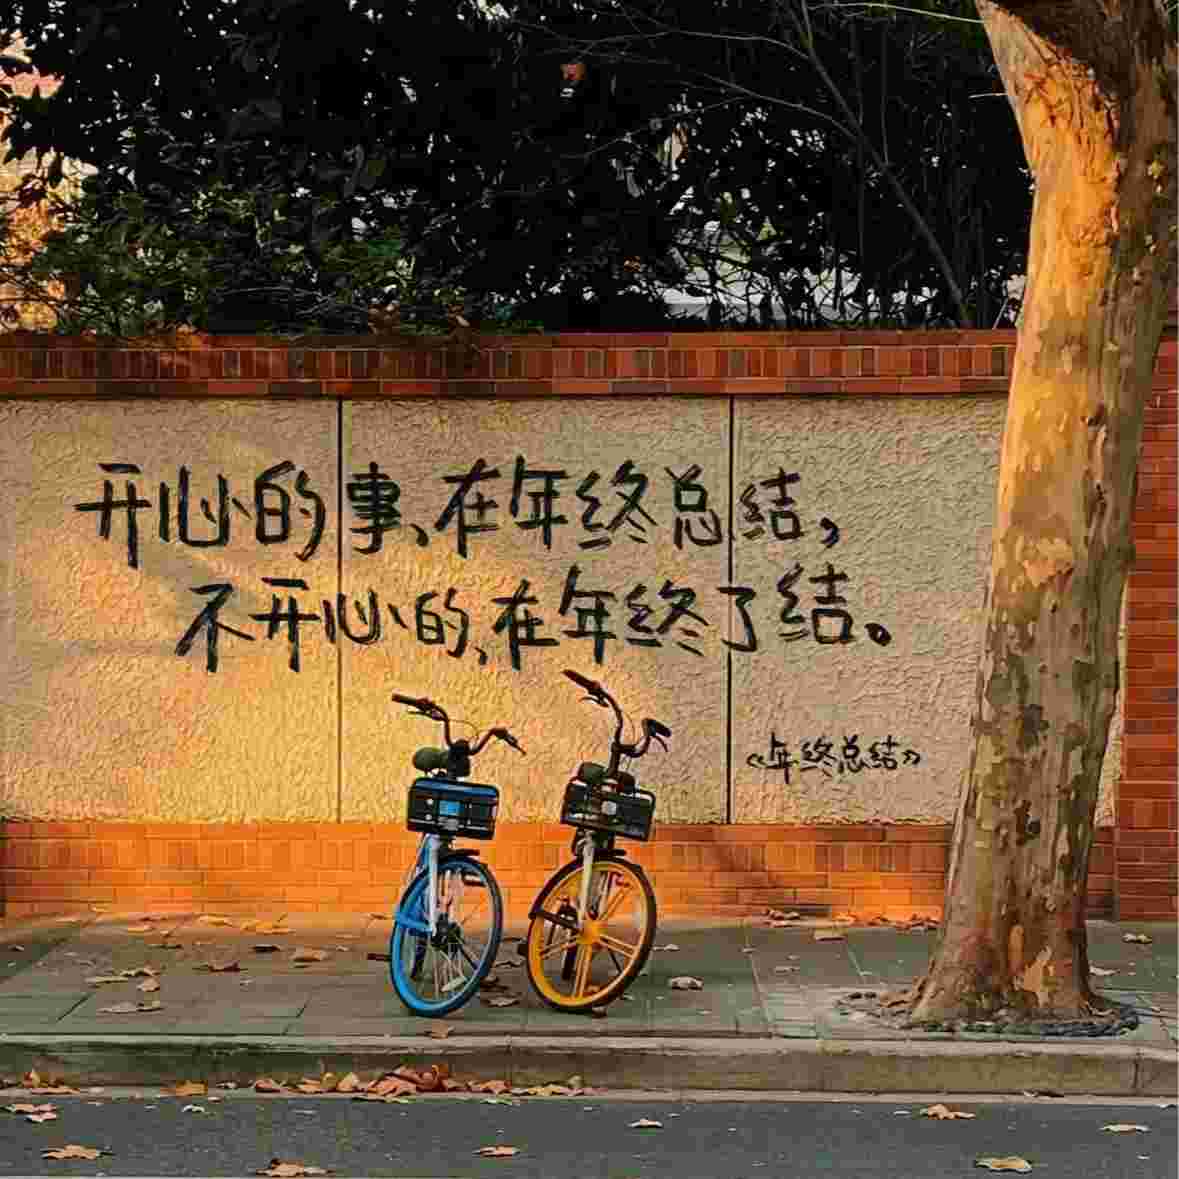 开心的事、在年终总结，
不开心的、在年终了结。
《年终总结》